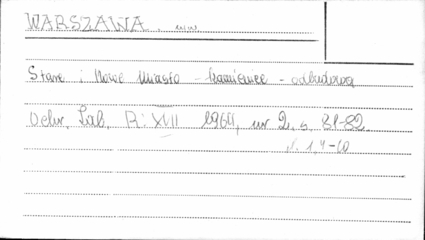 WARSZAWA
Stare i Nowe Miasto - kamienice - odbudowa
Ochr. Zab. R: XVII 1964, nr 2, s. 81-82.
il. 1, 4-10